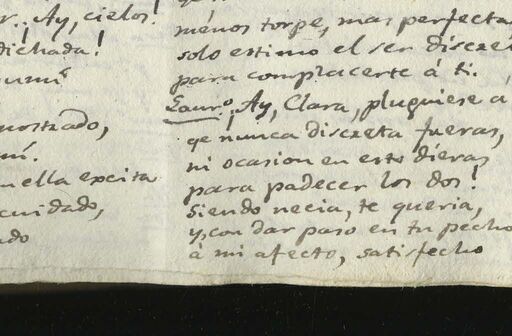 r.. Ay, cielos!
dichada!
nostrado,
ella excita
cuidado,
ado
ménos torpe, mas perfecta
solo estimo el ser discre
para complacerte á ti.
Laur.º ¡Ay, Clara, pluguiese a
qe nunca discreta fueras,
ni ocasion en esto dieras
para padecer los dos!
Siendo necia, te queria,
y, con dar paso en tu pecho
á mi afecto, satisfecho